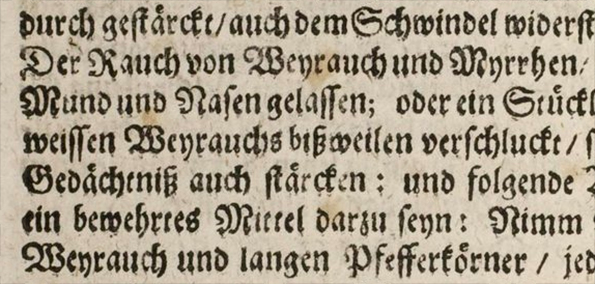 durch gestärckt/auch dem Schwindel widerst
Der Rauch von Weyrauch und Myrrhen/
Mund und Nasen gelassen; oder ein Stückl
weissen Weyrauchs bißweilen verschluckt / s
Gedächtniß auch stärcken: und folgende
ein bewehrtes Mittel darzu seyn: Nimm
Weyrauch und langen Pfefferkörner / jed